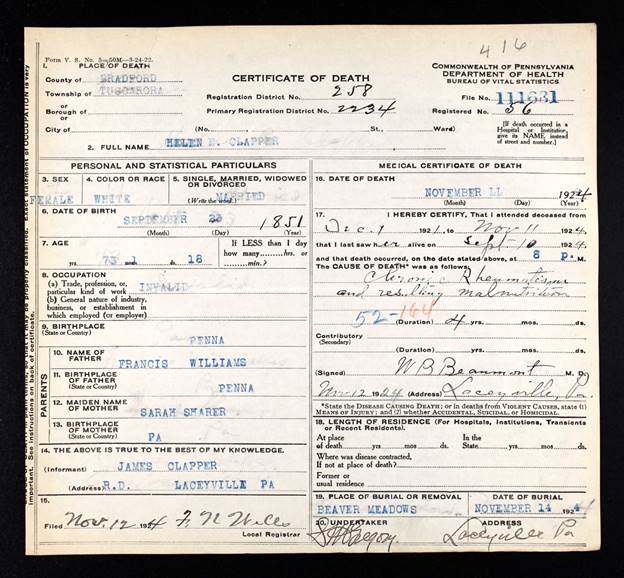 416
Form V. S. No. 5—50M—3-24-22.
1. PLACE OF DEATH
County of BRADFORD
Township of TUSCARORA
or
Borough of
or
City of
CERTIFICATE OF DEATH
Registration District No. 258
Primary Registration District No. 2234
(No. St., Ward)
COMMONWEALTH OF PENNSYLVANIA
DEPARTMENT OF HEALTH
BUREAU OF VITAL STATISTICS
File No. 111631
Registered No. 56
[If death occurred in a
Hospital or Institution,
give its NAME, instead
of street and number.]
2. FULL NAME HELEN E. CLAPPER
PERSONAL AND STATISTICAL PARTICULARS
3. SEX
FEMALE
4. COLOR OR RACE
WHITE
5. SINGLE, MARRIED, WIDOWED
OR DIVORCED
(Write the word) MARRIED
6. DATE OF BIRTH
SEPTEMBER 23 1851
(Month) (Day) (Year)
7. AGE
73 1 18
If LESS than 1 day
how many hrs.
or min.?
8. OCCUPATION
(a) Trade, profession, or
particular kind of work INVALID
(b) General nature of industry,
business, or establishment in
which employed (or employer)
9. BIRTHPLACE
(State or Country) PENNA
PARENTS
10. NAME OF
FATHER FRANCIS WILLIAMS
11. BIRTHPLACE
OF FATHER
(State or Country) PENNA
12. MAIDEN NAME
OF MOTHER SARAH SHARER
13. BIRTHPLACE
OF MOTHER
(State or Country) PA
14. THE ABOVE IS TRUE TO THE BEST OF MY KNOWLEDGE.
(Informant) JAMES CLAPPER
(Address) R.D. LACEYVILLE PA
15.
Filed Nov. 12 1924 F. N. Wells
Local Registrar
MEDICAL CERTIFICATE OF DEATH
16. DATE OF DEATH
NOVEMBER LL 1924
(Month) (Day) (Year)
17. I HEREBY CERTIFY, That I attended deceased
from Dec. 9 1921, to Nov 11 1924,
that I last saw her alive on Sept-10 1924
and that death occurred, on the date stated above, at 8 P.m.
The CAUSE OF DEATH* was as follows:
Chronic Rheumatism
and resulting malnutrition
52-164
(Duration) 4 yrs. mos. ds.
Contributory
(Secondary)
(Duration) yrs. mos. ds.
(Signed) W B Beaumont M. D.
Nov. 12 1924 (Address) Laceyville, Pa.
*State the DISEASE CAUSING DEATH; or in deaths from VIOLENT CAUSES, state (1)
MEANS OF INJURY; and (2) whether ACCIDENTAL, SUICIDAL, OR HOMICIDAL.
18. LENGTH OF RESIDENCE (For Hospitals, Institutions, Transients
or Recent Residents).
At place
of death yrs. mos. ds.
In the
State yrs. mos. ds.
Where was disease contracted,
If not at place of death?
Former or
usual residence
19. PLACE OF BURIAL OR REMOVAL
BEAVER MEADOWS
DATE OF BURIAL
NOVEMBER 14 1924
20. UNDERTAKER
ADDRESS
Laceyville Pa
important. See instructions on back of certificate.